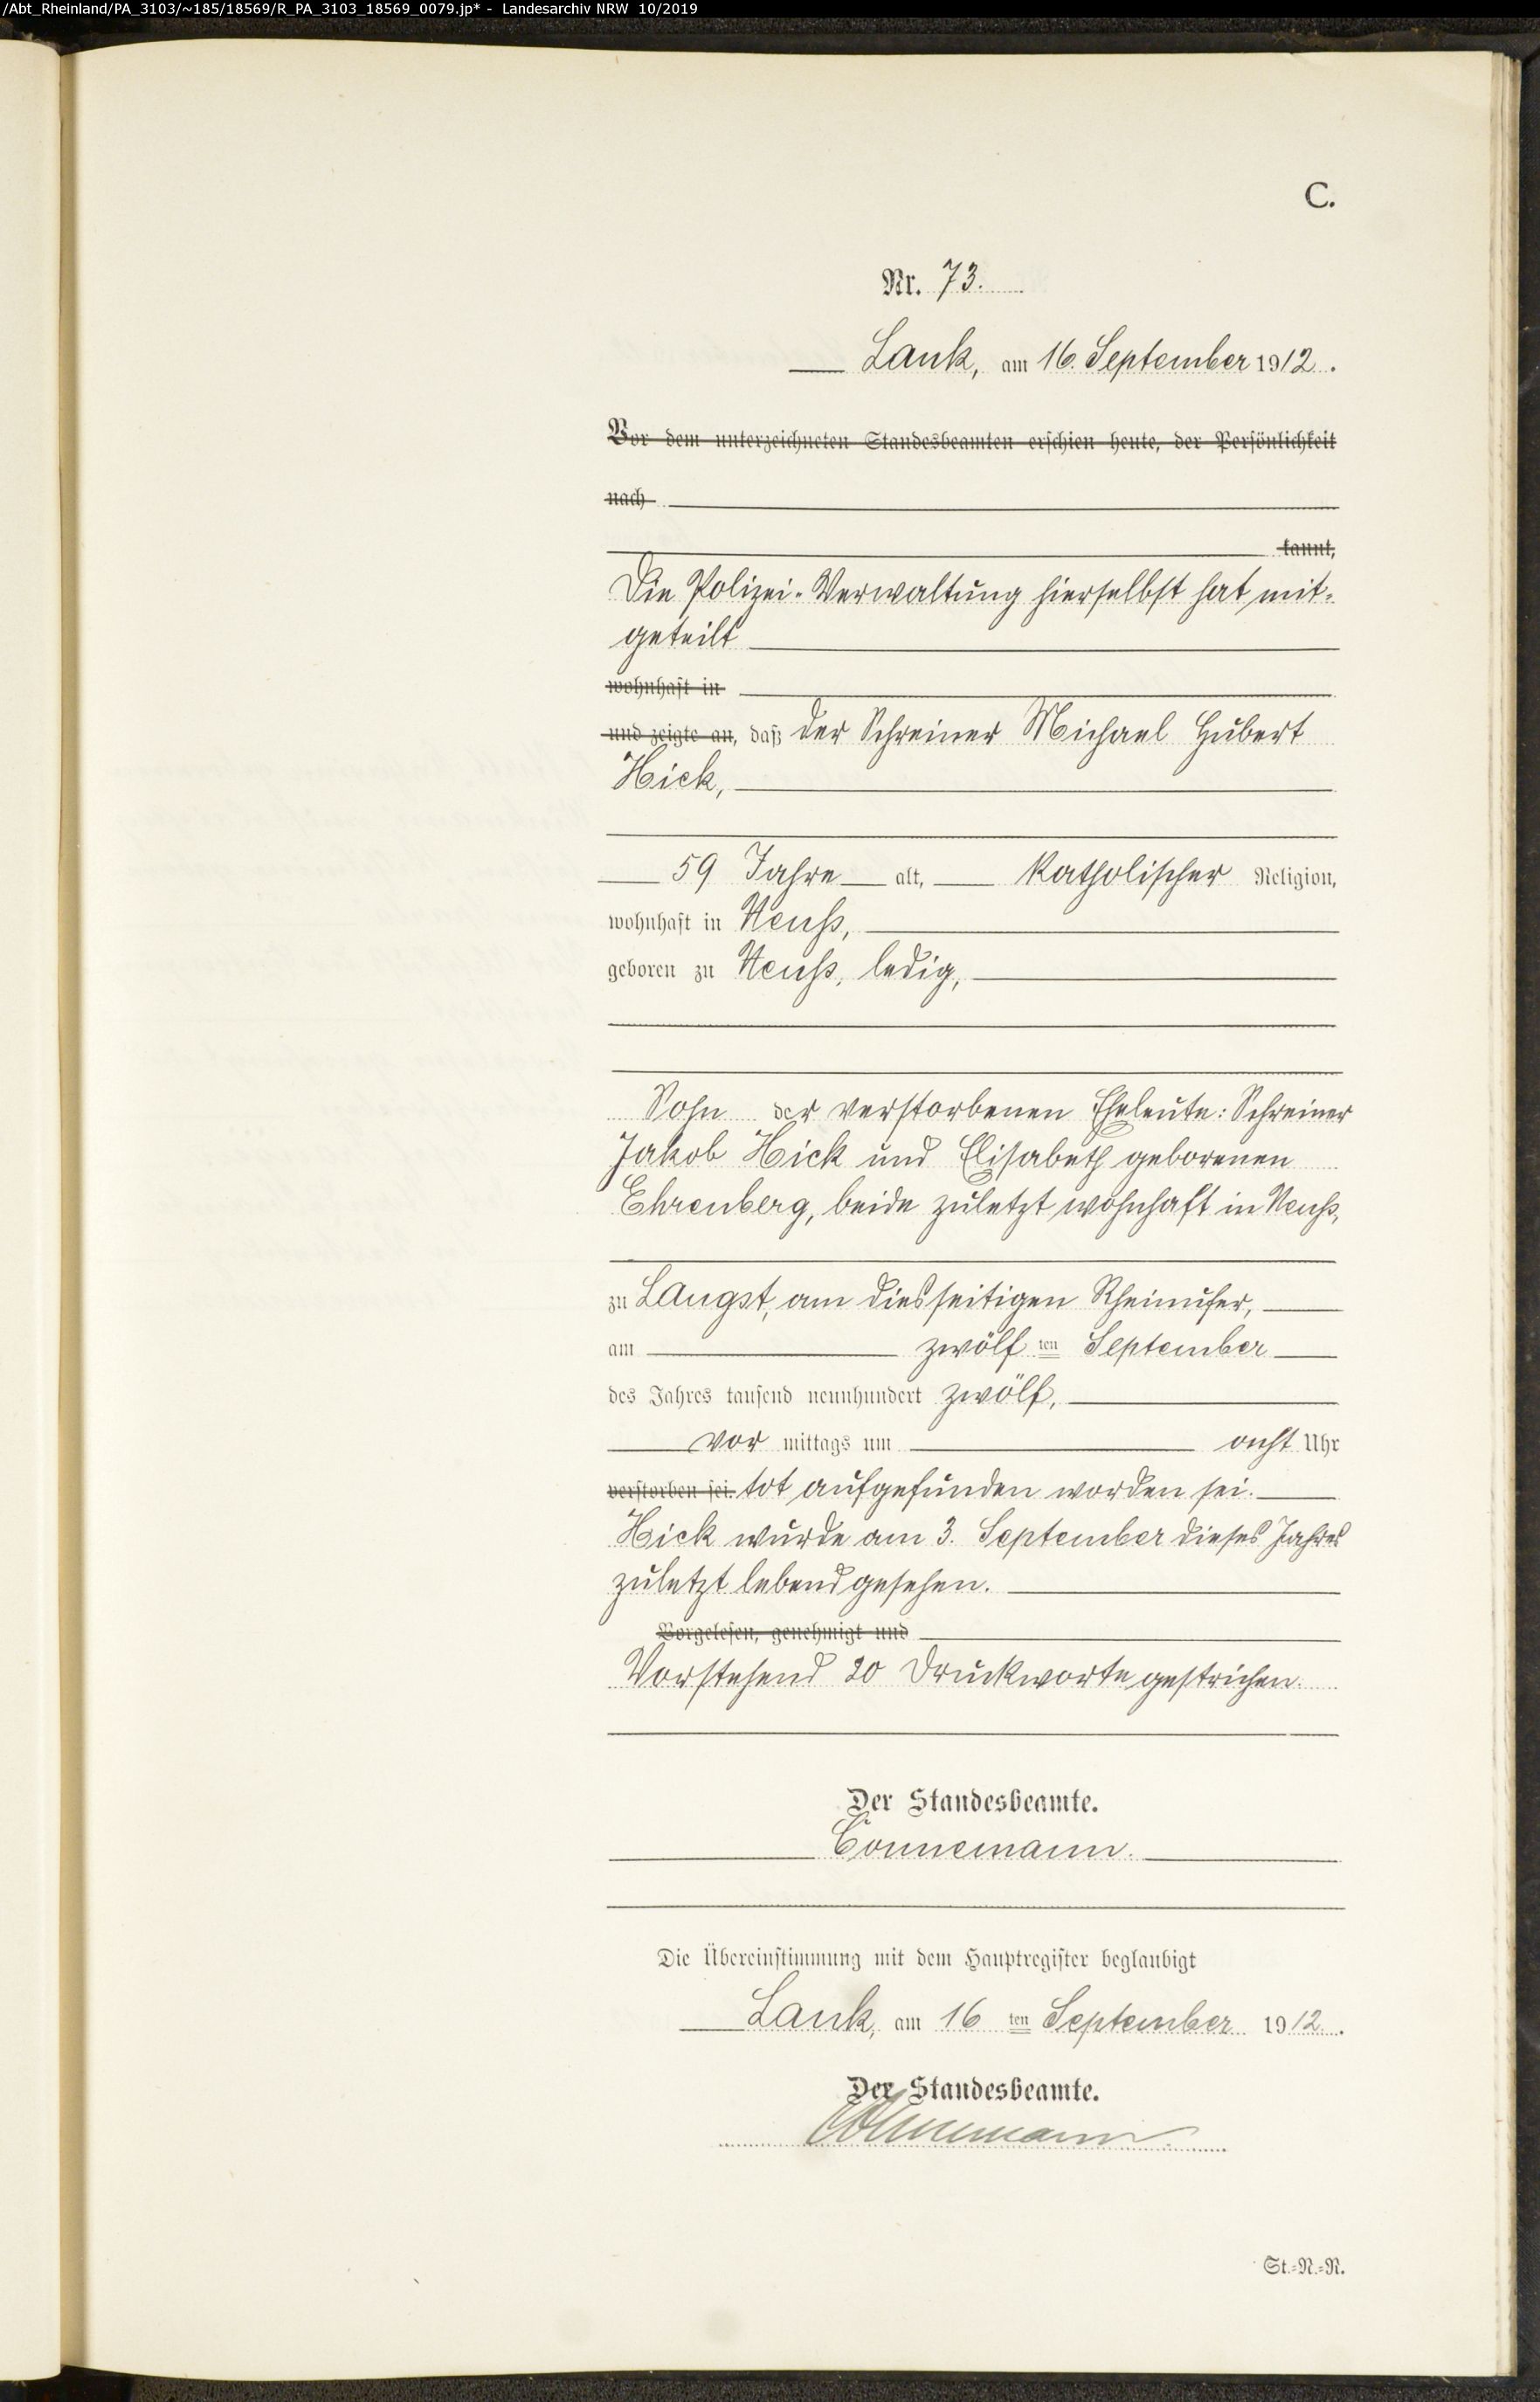 /Abt_Rheinland/PA_3103/~185/18569/R_PA_3103_18569_0079.jp* - Landesarchiv NRW 10/2019
C.
Nr. 73.
Lank, am 16. September 1912.
Vor dem unterzeichneten Standesbeamten erschien heute, der Persönlichkeit
nach
kannt,
Die Polizei-Verwaltung hierselbst hat mit-
geteilt
wohnhaft in
und zeigte an, daß der Schreiner Michael Hubert
Hick,
59 Jahre alt, katholischer Religion,
wohnhaft in Neuß,
geboren zu Neuß, ledig,
Sohn der verstorbenen Eheleute: Schreiner
Jakob Hick und Elisabeth geborenen
Ehrenberg, beide zuletzt wohnhaft in Neuß,
zu Langst, am diesseitigen Rheinufer,
am zwölf ten September
des Jahres tausend neunhundert zwölf,
vor mittags um acht Uhr
verstorben sei. tot aufgefunden worden sei.
Hick wurde am 3. September dieses Jahres
zuletzt lebend gesehen.
Vorgelesen, genehmigt und
Vorstehend 20 Druckworte gestrichen.
Der Standesbeamte.
Connemann.
Die Übereinstimmung mit dem Hauptregister beglaubigt
Lank, am 16 ten September 1912.
Der Standesbeamte.
Connemann
St.-N.-R.